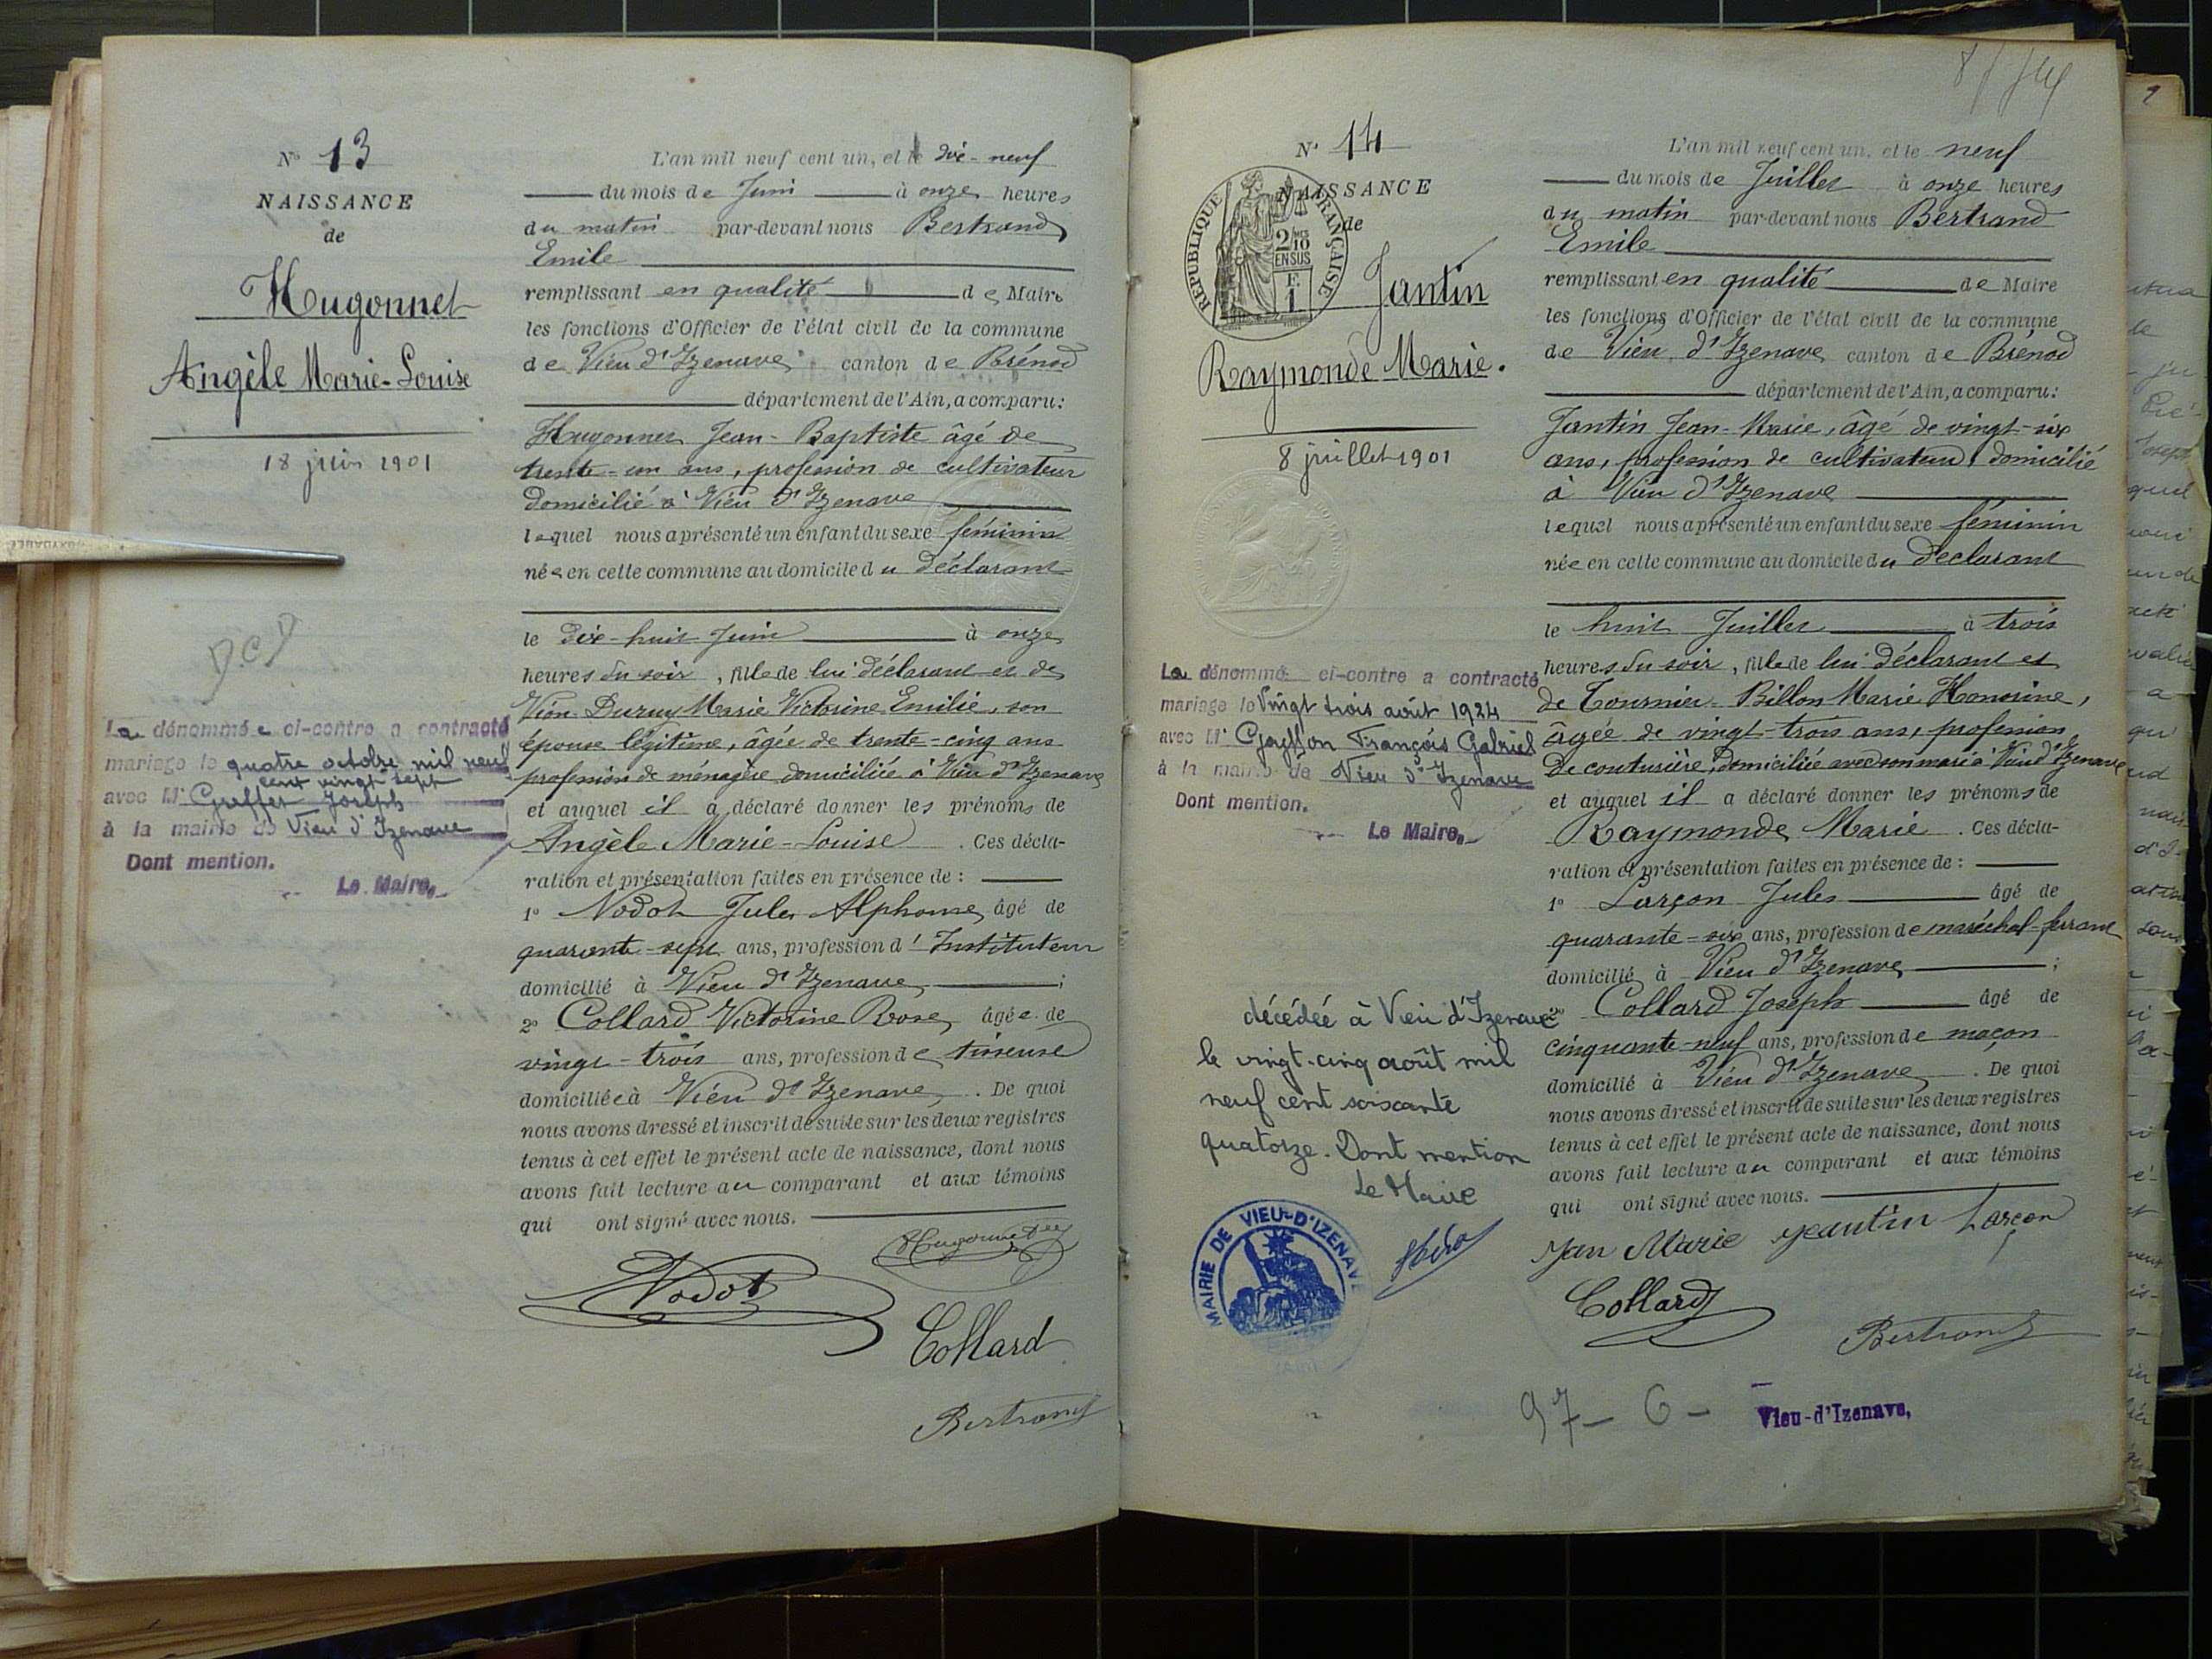 N° 13
NAISSANCE
de
Hugonnet
Angèle Marie-Louise
18 juin 1901
DCD
La dénommée ci-contre a contracté
mariage le quatre octobre mil neuf
cent vingt sept
avec Mr Greffet Joseph
à la mairie de Vieu d'Izenave
Dont mention.
Le Maire,
L'an mil neuf cent un, et le dix-neuf
du mois de Juin à onze heures
du matin par-devant nous Bertrand
Emile
remplissant en qualité de Maire
les fonctions d'Officier de l'état civil de la commune
de Vieu d'Izenave canton de Brénod
département de l'Ain, a comparu:
Hugonnet Jean-Baptiste âgé de
trente-un ans, profession de cultivateur
domicilié à Vieu d'Izenave
lequel nous a présenté un enfant du sexe féminin
née en cette commune au domicile du déclarant
le dix-huit Juin à onze
heures du soir, fille de lui déclarant et de
Vion-Dury Marie Victorine Emilie, son
épouse légitime, âgée de trente-cinq ans
profession de ménagère domiciliée à Vieu d'Izenave
et auquel il a déclaré donner les prénoms de
Angèle Marie-Louise . Ces décla-
ration et présentation faites en présence de :
1° Nodot Jules Alphonse, âgé de
quarante-sept ans, profession d'Instituteur
domicilié à Vieu d'Izenave ;
2° Collard Victorine Rose, âgée de
vingt-trois ans, profession de tisseuse
domiciliée à Vieu d'Izenave . De quoi
nous avons dressé et inscrit de suite sur les deux registres
tenus à cet effet le présent acte de naissance, dont nous
avons fait lecture au comparant et aux témoins
qui ont signé avec nous.
Hugonnet
Nodot
Collard
Bertrand
N° 14
NAISSANCE
de
RÉPUBLIQUE FRANÇAISE
2/10
EN SUS
F.
1
Jantin
Raymonde Marie.
8 juillet 1901
La dénommé ci-contre a contracté
mariage le Vingt trois août 1924
avec Mr François Gabriel
à la mairie de Vieu d'Izenave
Dont mention.
Le Maire,
décédée à Vieu d'Izenave
le vingt-cinq août mil
neuf cent soixante
quatorze. Dont mention
Le Maire
MAIRIE DE VIEU-D'IZENAVE
L'an mil neuf cent un, et le neuf
du mois de Juillet à onze heures
du matin par-devant nous Bertrand
Emile
remplissant en qualité de Maire
les fonctions d'Officier de l'état civil de la commune
de Vieu d'Izenave canton de Brénod
département de l'Ain, a comparu:
Jantin Jean-Marie, âgé de vingt-six
ans, profession de cultivateur, domicilié
à Vieu d'Izenave
lequel nous a présenté un enfant du sexe féminin
née en cette commune au domicile du déclarant
le huit Juillet à trois
heures du soir, fille de lui déclarant et
de Tournier-Billon Marie Honorine,
âgée de vingt-trois ans, profession
de couturière, domiciliée avec son mari à Vieu d'Izenave
et auquel il a déclaré donner les prénoms de
Raymonde Marie . Ces décla-
ration et présentation faites en présence de :
1° Larçon Jules âgé de
quarante-six ans, profession de maréchal-ferrant
domicilié à Vieu d'Izenave ;
2° Collard Joseph âgé de
cinquante-neuf ans, profession de maçon
domicilié à Vieu d'Izenave . De quoi
nous avons dressé et inscrit de suite sur les deux registres
tenus à cet effet le présent acte de naissance, dont nous
avons fait lecture au comparant et aux témoins
qui ont signé avec nous.
Jan Marie Jeantin Larçon
Collard
Bertrand
97 - 6 -
Vieu-d'Izenave,